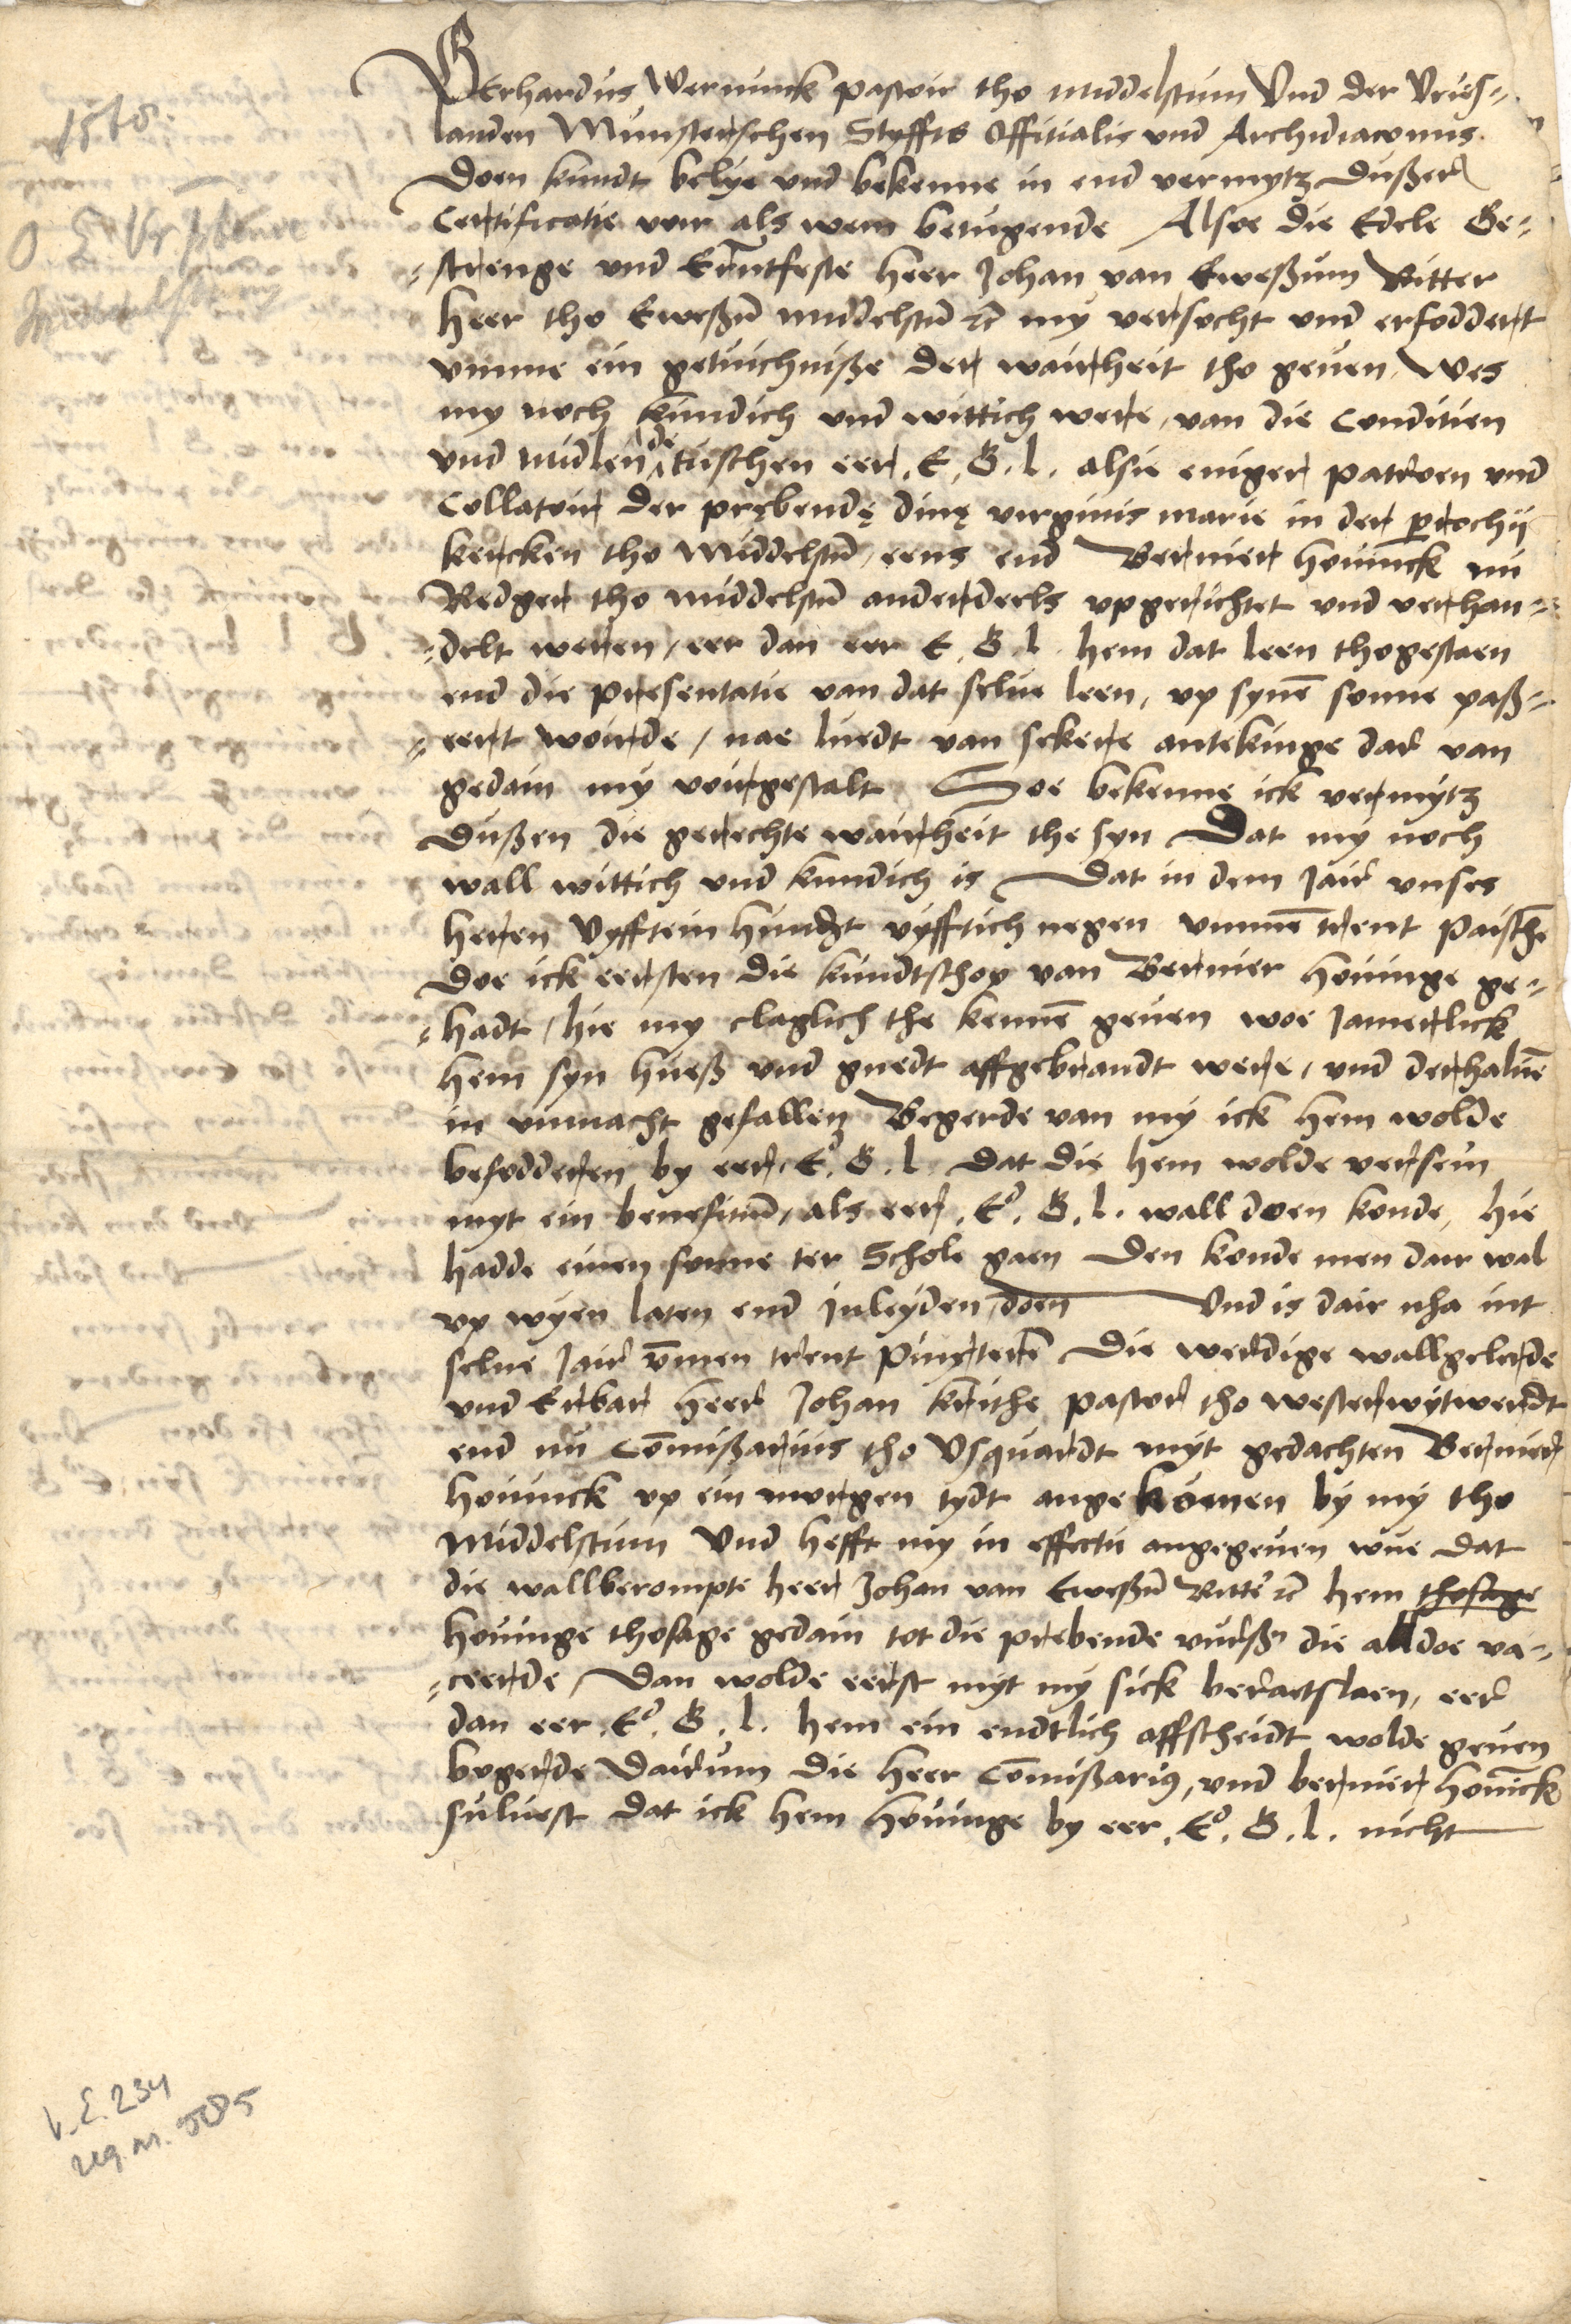 1568.
Gerhardus Werninck pastoir tho Middelstum Vnd der Vries-
landen Munsterschen Styffts Offitialis vnd Archidiaconus.
Doen kundt belye vnd bekenne in end vermytz dußer
Certificatie voir als wem betugende Alsoe die Edele Ge-
-strenge vnd Erentfeste heer Johan van Eweßum Ritter
heer tho Eweßū middelstū ꝛc my versocht vnd erfoddert
vmme ein getuichniße der wairheit tho geuen, Wes
my noch kundich vnd wittich were, van die Conditien
vnd midlen de tuschen eer. E. G. l. alsie eniger patroen vnd
Collatoir der prębendę diuę virginis marie in der prochij
kercken tho Middelstū, eens end Berner houinck nu
Redger tho middelstū anderdeels vpgerichtet vnd verhan-
-delt weren, eer dan eer E. G. l. hem dat leen thogestaen
end die presentatie van dat selue leen, vp synē sonne paß-
-eert worde, nae luedt van sekere antekinge dar van
gedain my voirgestalt Soe bekenne ick vermytz
dußen die gerechte wairheit the syn Dat my noch
wall wittich vnd kundich is Dat in dem Jair vnses
heren Vyfftein hundert vyfftich negen vmmē trent paischē
doe ick eersten die kundtschop van Berner houinge ge-
-hadt, hie my claglich the kennē geuen woe Jamerlick
hem syn hueß vnd guedt affgebrandt were, vnd derhaluē
in vnmacht gefallen Begerde van my ick hem wolde
befodderen by eer. E. G. l. dat die hem wolde versein
myt ein benefitiū, als eer. E. G. l. wall doen konde, hie
hadde einen sonne ter Schole gaen den konde men dair wal
vp wyen laten end inleyden doen Vnd is dair nha int
selue Jair vmmen trent Pinxterē die werdige wallgelerde
vnd Erbar heer Johan kruithe pastor tho westerwytwerdt
end nu Cōmißarius tho Vsquardt myt gedachten Berner
houinck vp ein morgen tydt angekomen by my tho
Middelstum Vnd hefft my in effectu angegeuen wue dat
die wallberompte heer Johan van Eweßū Ritter ꝛc hem thosage
houinge thosage gedain tot die prebende vurß die alldoe va-
-ceerde, Dan wolde eerst myt my sick beraetslaen, eer
dan eer. E. G. l. hem ein endtlich affscheidt wolde geuen
begerde dairum die heer Cōmißarius, vnd berner houīck
suluest dat ick hem houinge by eer. E. G. l. nicht
V.E. 234
reg. nr. 585